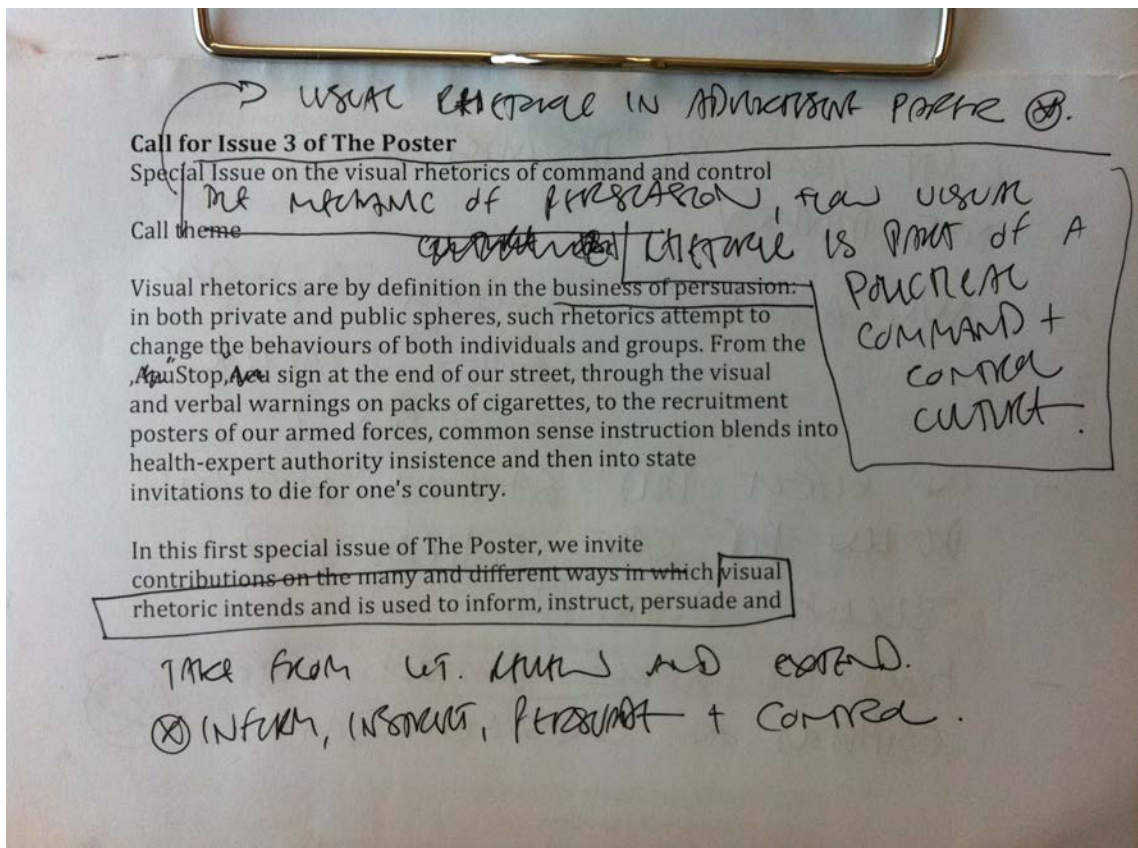 VISUAL RHETORIC IN ADVERTISEMENT PAPER ⊗.
Call for Issue 3 of The Poster
Special Issue on the visual rhetorics of command and control
THE MECHANIC OF PERSUASION, HOW VISUAL
Call theme
RHETORIC IS PART OF A
POLITICAL
COMMAND +
CONTROL
CULTURE.
Visual rhetorics are by definition in the business of persuasion:
in both private and public spheres, such rhetorics attempt to
change the behaviours of both individuals and groups. From the
Stop, sign at the end of our street, through the visual
and verbal warnings on packs of cigarettes, to the recruitment
posters of our armed forces, common sense instruction blends into
health-expert authority insistence and then into state
invitations to die for one's country.
In this first special issue of The Poster, we invite
contributions on the many and different ways in which visual
rhetoric intends and is used to inform, instruct, persuade and
TAKE FROM LIT. REVIEW AND EXTEND.
⊗ INFORM, INSTRUCT, PERSUADE + CONTROL.